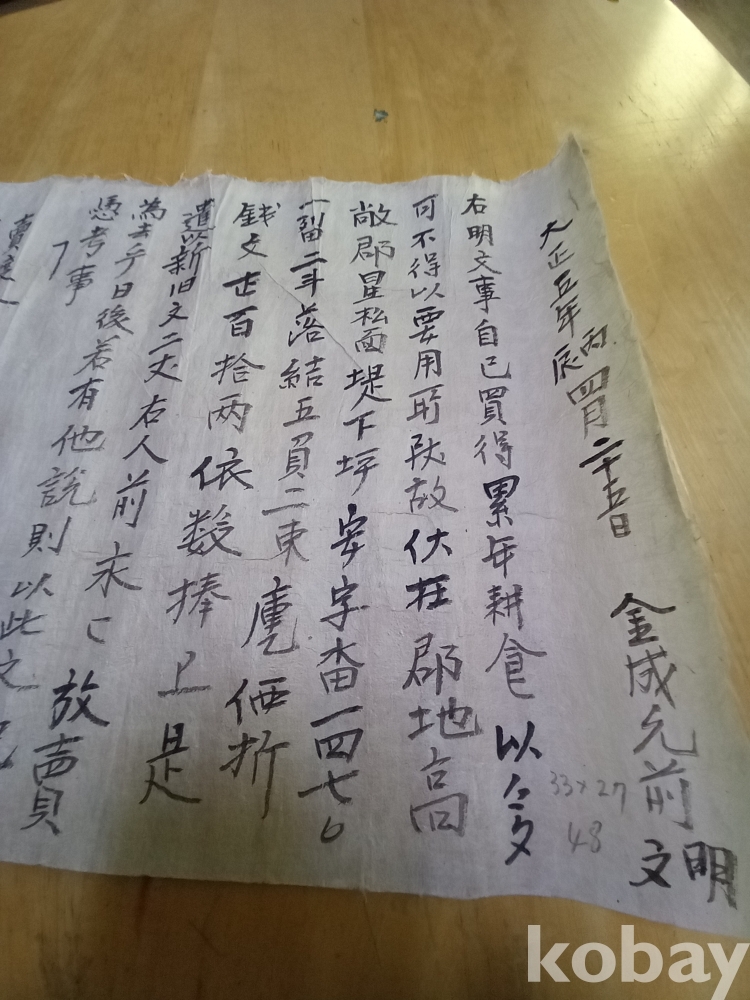 大正五年丙辰四月二十五日 金成元前
明文
右明文事自己買得累年耕食以今
可不得以要用所致故伏在郡地高
敞郡星松面堤下坪安字畓一四七
一畓二斗落結五負二束庫価折
錢文 百拾兩依数捧上是
遣以新旧文二丈右人前永〻放
為去乎日後若有他說則以此文
憑考事
33×27
48
kobay